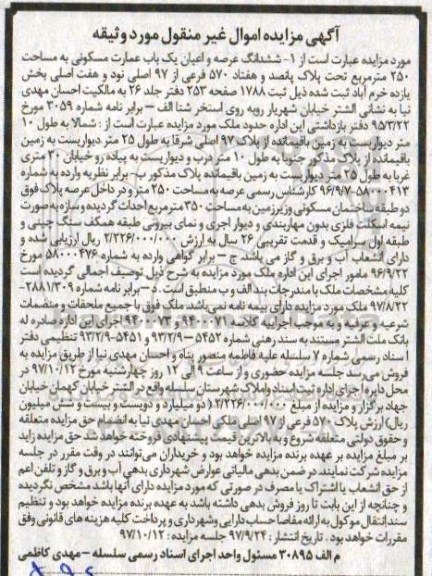 آگهی مزایده اموال غیر منقول مورد وثیقه
مورد مزایده عبارت است از ۱- ششدانگ عرصه و اعیان یک باب عمارت مسکونی به مساحت
۲۵۰ مترمربع تحت پلاک پانصد و هفتاد ۵۷۰ فرعی از ۹۷ اصلی نود و هفت اصلی بخش
یازده خرم آباد ثبت شده ذیل ثبت ۱۷۸۸ صفحه ۲۵۳ دفتر جلد ۲۶ به مالکیت احسان مهدی
نیا به نشانی الشتر خیابان شهریار روبه روی استخر شنا الف – برابر نامه شماره ۳۰۵۹ مورخ
۹۵/۳/۲۲ دفتر بازداشتی این اداره حدود ملک مورد مزایده عبارت است از : شمالا به طول ۱۰
متر دیواریست به زمین باقیمانده از پلاک ۹۷ اصلی شرقا به طول ۲۵ متر دیواریست به زمین
باقیمانده از پلاک مذکور جنوبا به طول ۱۰ متر درب و دیواریست به پیاده رو خیابان ۳۰ متری
غربا به طول ۲۵ متر دیواریست به زمین باقیمانده پلاک مذکور ب- برابر نظریه وارده به شماره
۵۸۰۰۰۴۱۳-۹۶/۹/۷ کارشناس رسمی عرصه به مساحت ۲۵۰ متر و در داخل عرصه پلاک فوق
دو طبقه ساختمان مسکونی و زیرزمین به مساحت ۳۵۰ مترمربع احداث گردیده و سازه به صورت
نیمه اسکلت فلزی بدون مهاربندی و دیوار اجری و نمای بیرونی طبقه همکف سنگ چینی و
طبقه اول سرامیک و قدمت تقریبی ۲۶ سال به ارزش ۲/۲۲۶/۰۰۰/۰۰۰ ریال ارزیابی شده و
دارای انشعاب آب و برق و گاز می باشد ج – برابر گواهی وارده به شماره ۵۸۰۰۰۴۷۶ مورخ
۹۶/۹/۲۲ مامور اجرای این اداره ملک مورد مزایده به شرح ذیل توصیف اجمالی گردیده است
کلیه مشخصات ملک با مندرجات بند الف و ب منطبق است. د-برابر نامه شماره ۲۸۸۱/۳۰۹-
۹۷/۸/۲۲ ملک مورد مزایده دارای بیمه نامه نمی باشد. ملک فوق با جمیع ملحقات و منضمات
شرعیه و عرفیه و به موجب اجراییه کلاسه ۹۴۰۰۷۱ و ۹۴۰۰۷۲ اجرای این اداره صادره له
بانک ملت الشتر مستند به سند رهنی شماره ۵۴۵۲ –۹۳/۲/۹ و ۵۴۵۱-۹۳/۲/۹ تنظیمی دفتر
ا سناد رسمی شماره ۷ سلسله علیه فاطمه منصور پناه و احسان مهدی نیا از طریق مزایده به
فروش می رسد جلسه مزایده حضوری و از ساعت ۹ الی ۱۲ روز چهارشنبه مورخ ۹۷/۱۰/۱۲ در
محل دایره اجرای اداره ثبت اسناد و املاک شهرستان سلسله واقع در الشتر خیابان کهمان خیابان
جهاد برگزار و مزایده از مبلغ ۲/۲۲۶/۰۰۰/۰۰۰ (دو میلیارد و دویست و بیست و شش میلیون
ریال) ارزش پلاک ۵۷۰ فرعی از ۹۷ اصلی ملکی احسان مهدی نیا به انضمام حق مزایده متعلقه
و حقوق دولتی متعلقه شروع و به بالاترین قیمت پیشنهادی فروخته خواهد شد حق مزایده زاید
بر مبلغ مزایده بر عهده برنده مزایده خواهد بود و خریداران می‌توانند در وقت مقرر در جلسه
مزایده شرکت نمایند. در ضمن بدهی مالیاتی عوارض شهرداری بدهی آب و برق و گاز و تلفن اعم
از حق انشعاب یا اشتراک یا مصرف در صورتی که مورد مزایده دارای آنها باشد مشخص نگردیده
و چنانچه از این بابت تا روز فروش بدهی داشته باشد به عهده برنده مزایده خواهد بود و تنظیم
سند انتقال موکول به ارائه مفاصا حساب دارایی و شهرداری و پرداخت کلیه هزینه های قانونی وفق
مقررات خواهد بود . تاریخ انتشار : ۹۷/۹/۲۴ جلسه مزایده : ۹۷/۱۰/۱۲
م الف ۳۰۸۹۵ مسئول واحد اجرای اسناد رسمی سلسله – مهدی کاظمی